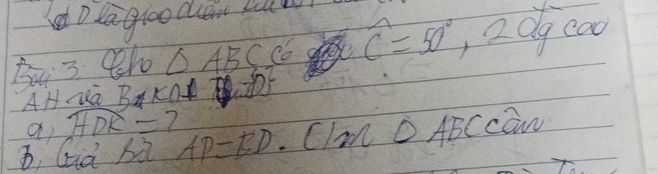 D là giao điểm
Bài 3. Cho Δ ABC có Ĉ = 50°, 2 đg cao
AH và BK
a, HDK = ?
b, Giả sử AD = BD. C/m Δ ABC cân